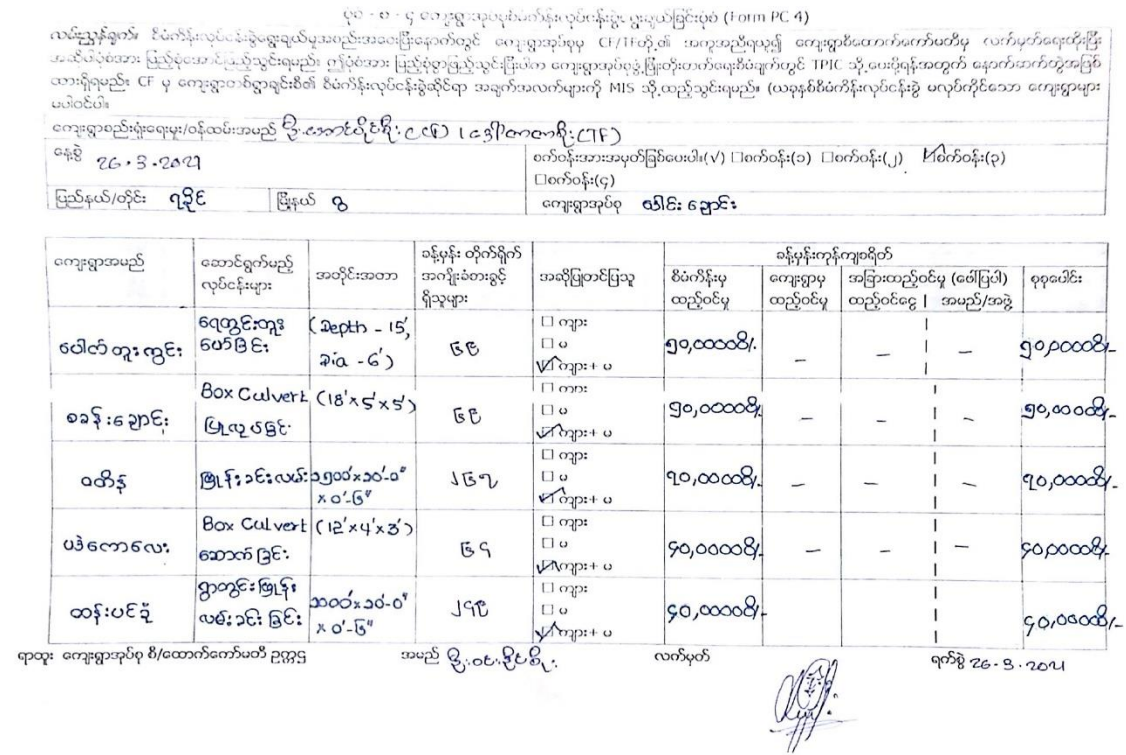 ပုံစံ - စ - ၄ ကျေးရွာအုပ်စုစီမံကိန်းလုပ်ငန်းခွဲ ရွေးချယ်ခြင်းပုံစံ (Form PC 4)
လမ်းညွှန်ချက်။ စီမံကိန်းလုပ်ငန်းခွဲရွေးချယ်မှုအစည်းအဝေးပြီးနောက်တွင် ကျေးရွာအုပ်စုမှ CF/TFတို့၏ အကူအညီရယူ၍ ကျေးရွာစီထောက်ကော်မတီမှ လက်မှတ်ရေးထိုးပြီး
အဆိုပါပုံစံအား ပြည့်စုံအောင်ဖြည့်သွင်းရမည်။ ဤပုံစံအား ပြည့်စုံစွာဖြည့်သွင်းပြီးပါက ကျေးရွာအုပ်စုဖွံ့ဖြိုးတိုးတက်ရေးစီမံချက်တွင် TPIC သို့ပေးပို့ရန်အတွက် နောက်ဆက်တွဲအဖြစ်
ထားရှိရမည်။ CF မှ ကျေးရွာတစ်ရွာချင်းစီ၏ စီမံကိန်းလုပ်ငန်းခွဲဆိုင်ရာ အချက်အလက်များကို MIS သို့ထည့်သွင်းရမည်။ (ယခုနှစ်စီမံကိန်းလုပ်ငန်းခွဲ မလုပ်ကိုင်သော ကျေးရွာများ
မပါဝင်ပါ။
ကျေးရွာစည်းရုံးရေးမှူး/ဝန်ထမ်းအမည် ဦးအောင်ပိုင်စိုး (CF) / ဒေါ်တာတာစိုး (TF)
နေ့စွဲ 26.3.2021 စက်ဝန်းအားအမှတ်ခြစ်ပေးပါ။(√) □စက်ဝန်း(၁) □စက်ဝန်း(၂) ☑စက်ဝန်း(၃)
□စက်ဝန်း(၄)
ပြည်နယ်/တိုင်း ရခိုင် မြို့နယ် ဂွ ကျေးရွာအုပ်စု ဝါးချောင်း
ကျေးရွာအမည် ဆောင်ရွက်မည့် လုပ်ငန်းများ အတိုင်းအတာ ခန့်မှန်း တိုက်ရိုက် အကျိုးခံစားခွင့် ရှိသူများ အဆိုပြုတင်ပြသူ ခန့်မှန်းကုန်ကျစရိတ်
စီမံကိန်းမှ ထည့်ဝင်မှု ကျေးရွာမှ ထည့်ဝင်မှု အခြားထည့်ဝင်မှု (ဖော်ပြပါ) ထည့်ဝင်ငွေ | အမည်/အဖွဲ့ စုစုပေါင်း
ပေါက်တူးကွင်း ရေတွင်းတူးဖော်ခြင်း (Depth - 15', Dia - 6') ၆၉ □ ကျား □ မ ☑ ကျား+ မ ၅၀,၀၀၀၀ိ/- – – – ၅၀,၀၀၀၀ိ/-
စခန်းချောင်း Box Culvert ပြုလုပ်ခြင်း (18'x5'x5') ၆၉ □ ကျား □ မ ☑ ကျား+ မ ၅၀,၀၀၀၀ိ/- – – – ၅၀,၀၀၀၀ိ/-
ဝတိန် မြုန်းခင်းလမ်း ၁၅၀၀'x၁၀'-၀" x ၀'-၆" ၂၆၇ □ ကျား □ မ ☑ ကျား+ မ ၇၀,၀၀၀၀ိ/- – – – ၇၀,၀၀၀၀ိ/-
ပဒဲကောလေး Box Culvert ဆောက်ခြင်း (12'x4'x3') ၆၄ □ ကျား □ မ ☑ ကျား+ မ ၄၀,၀၀၀၀ိ/- – – – ၄၀,၀၀၀၀ိ/-
ထန်းပင်ခုံ ရွာတွင်းမြုန်းလမ်းခင်းခြင်း ၁၁၀၀'x၁၀'-၀" x ၀'-၆" ၂၄၉ □ ကျား □ မ ☑ ကျား+ မ ၄၀,၀၀၀၀ိ/- ၄၀,၀၀၀၀ိ/-
ရာထူး ကျေးရွာအုပ်စု စီ/ထောက်ကော်မတီ ဥက္ကဌ အမည် လက်မှတ် ရက်စွဲ 26.3.2021